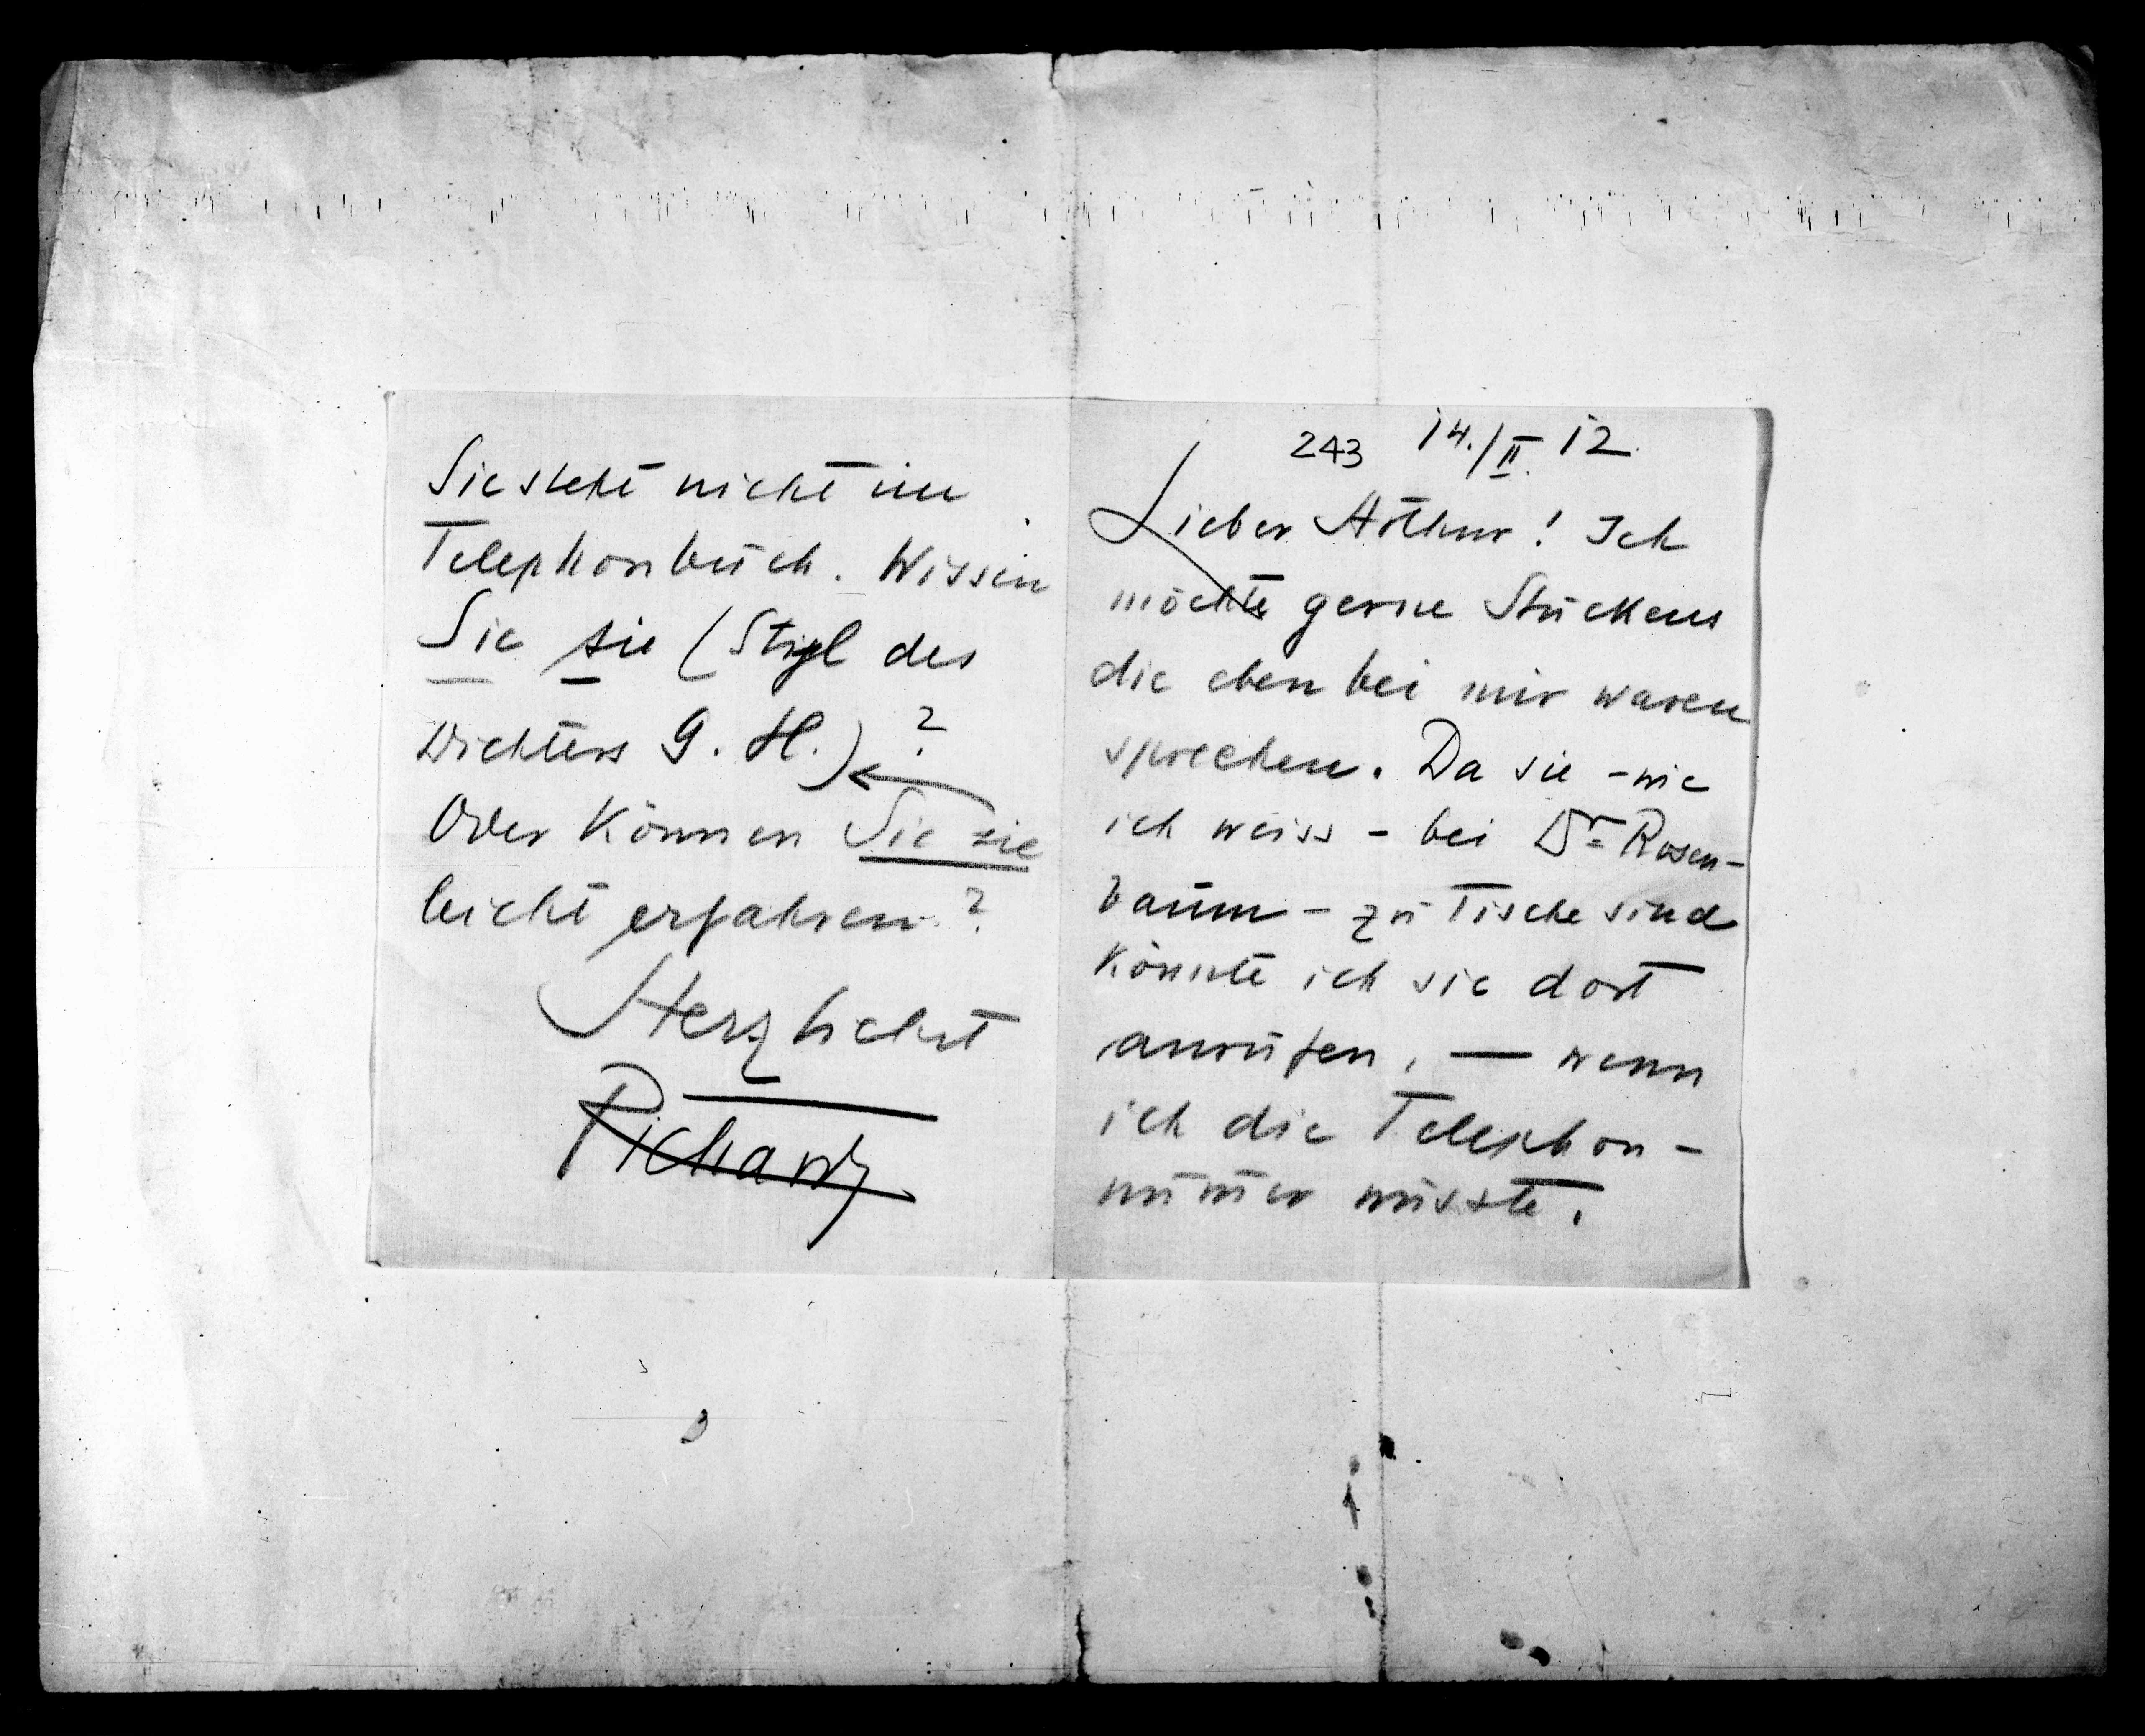 243 14./II. 12.
Lieber Arthur! Ich
möchte gerne Stuckens
die eben bei mir waren
sprechen. Da sie – wie
ich weiss – bei Dr Rosen-
baum – zu Tische sind
könnte ich sie dort
anrufen, — wenn
ich die Telephon-
num̄er wüsste.
Sie steht nicht im
Telephonbuch. Wissen
Sie sie (Styl des
Dichters G. H.) ?
Oder können Sie sie
leicht erfahren?
Herzlichst
Richard